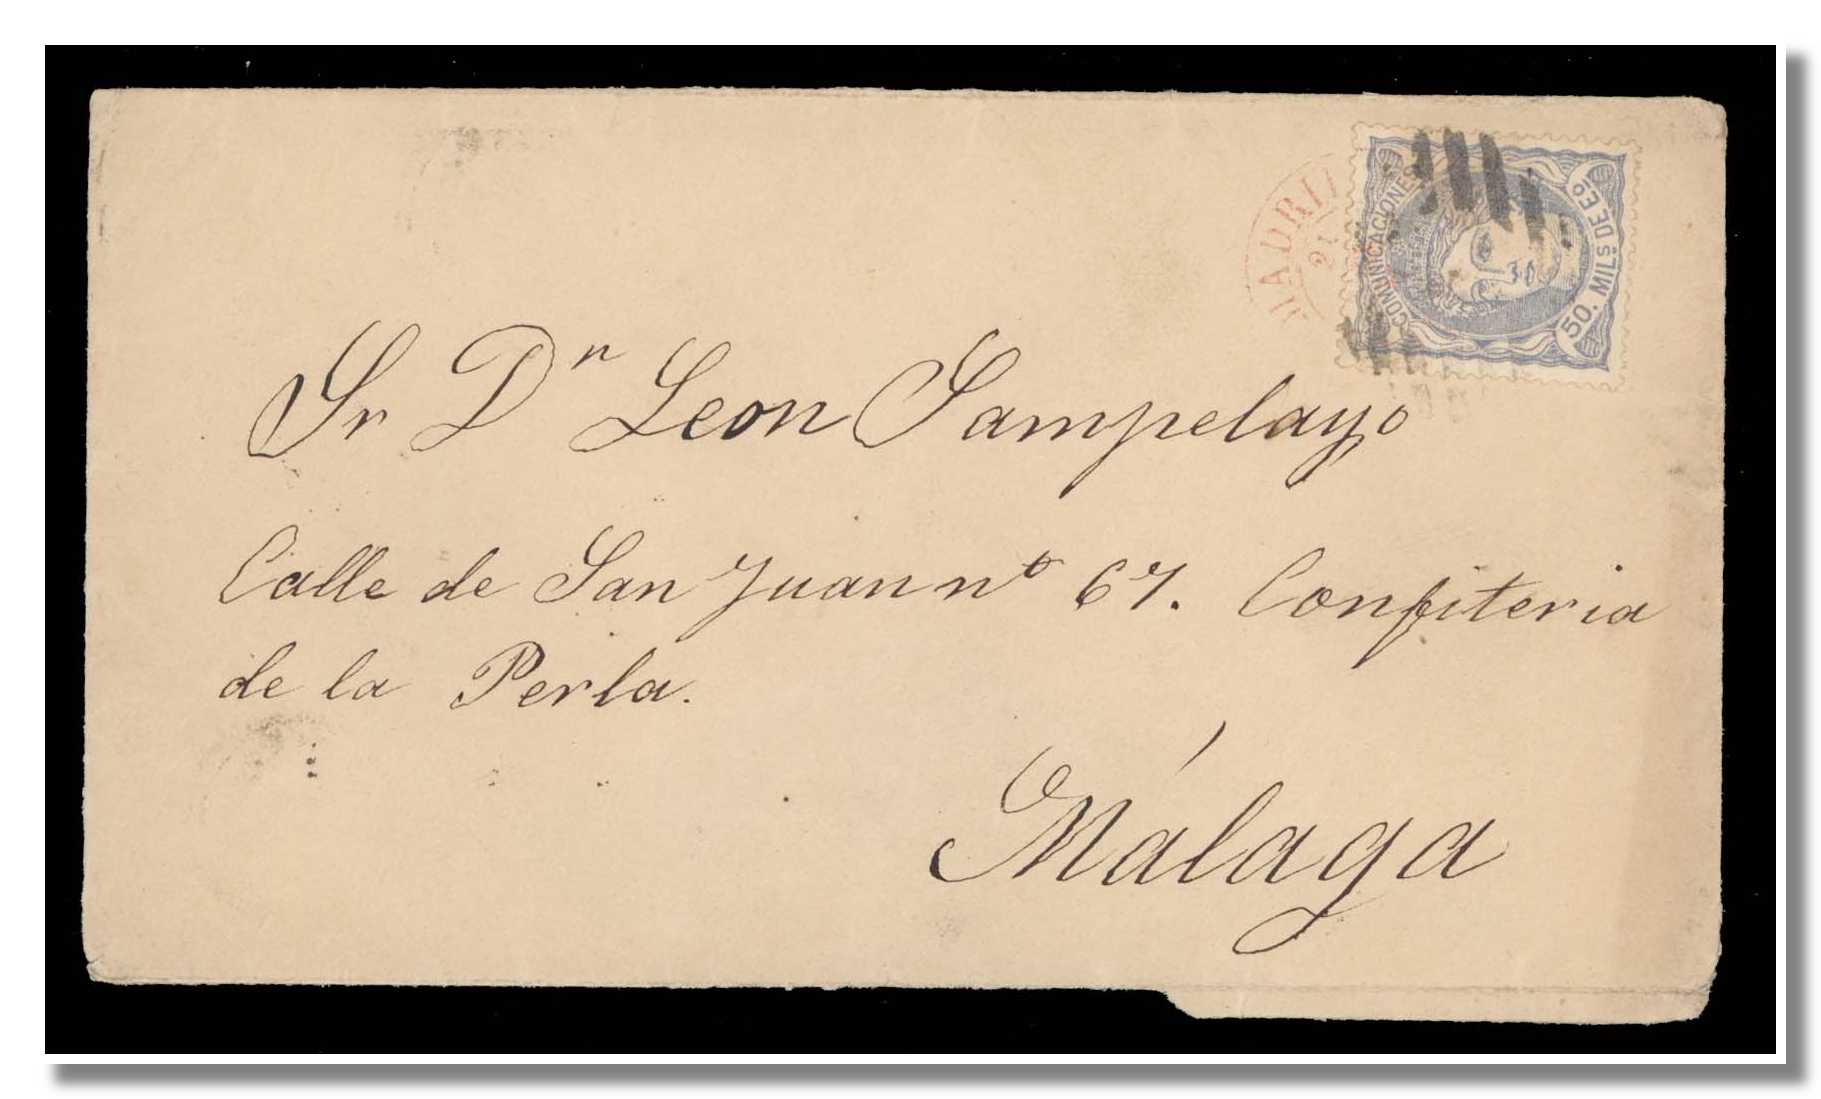 COMUNICACIONES
50. MILS DE EO
MADRI
21
Sr Dn Leon Sampelayo
Calle de San Juan no 67. Confiteria
de la Perla.
Málaga